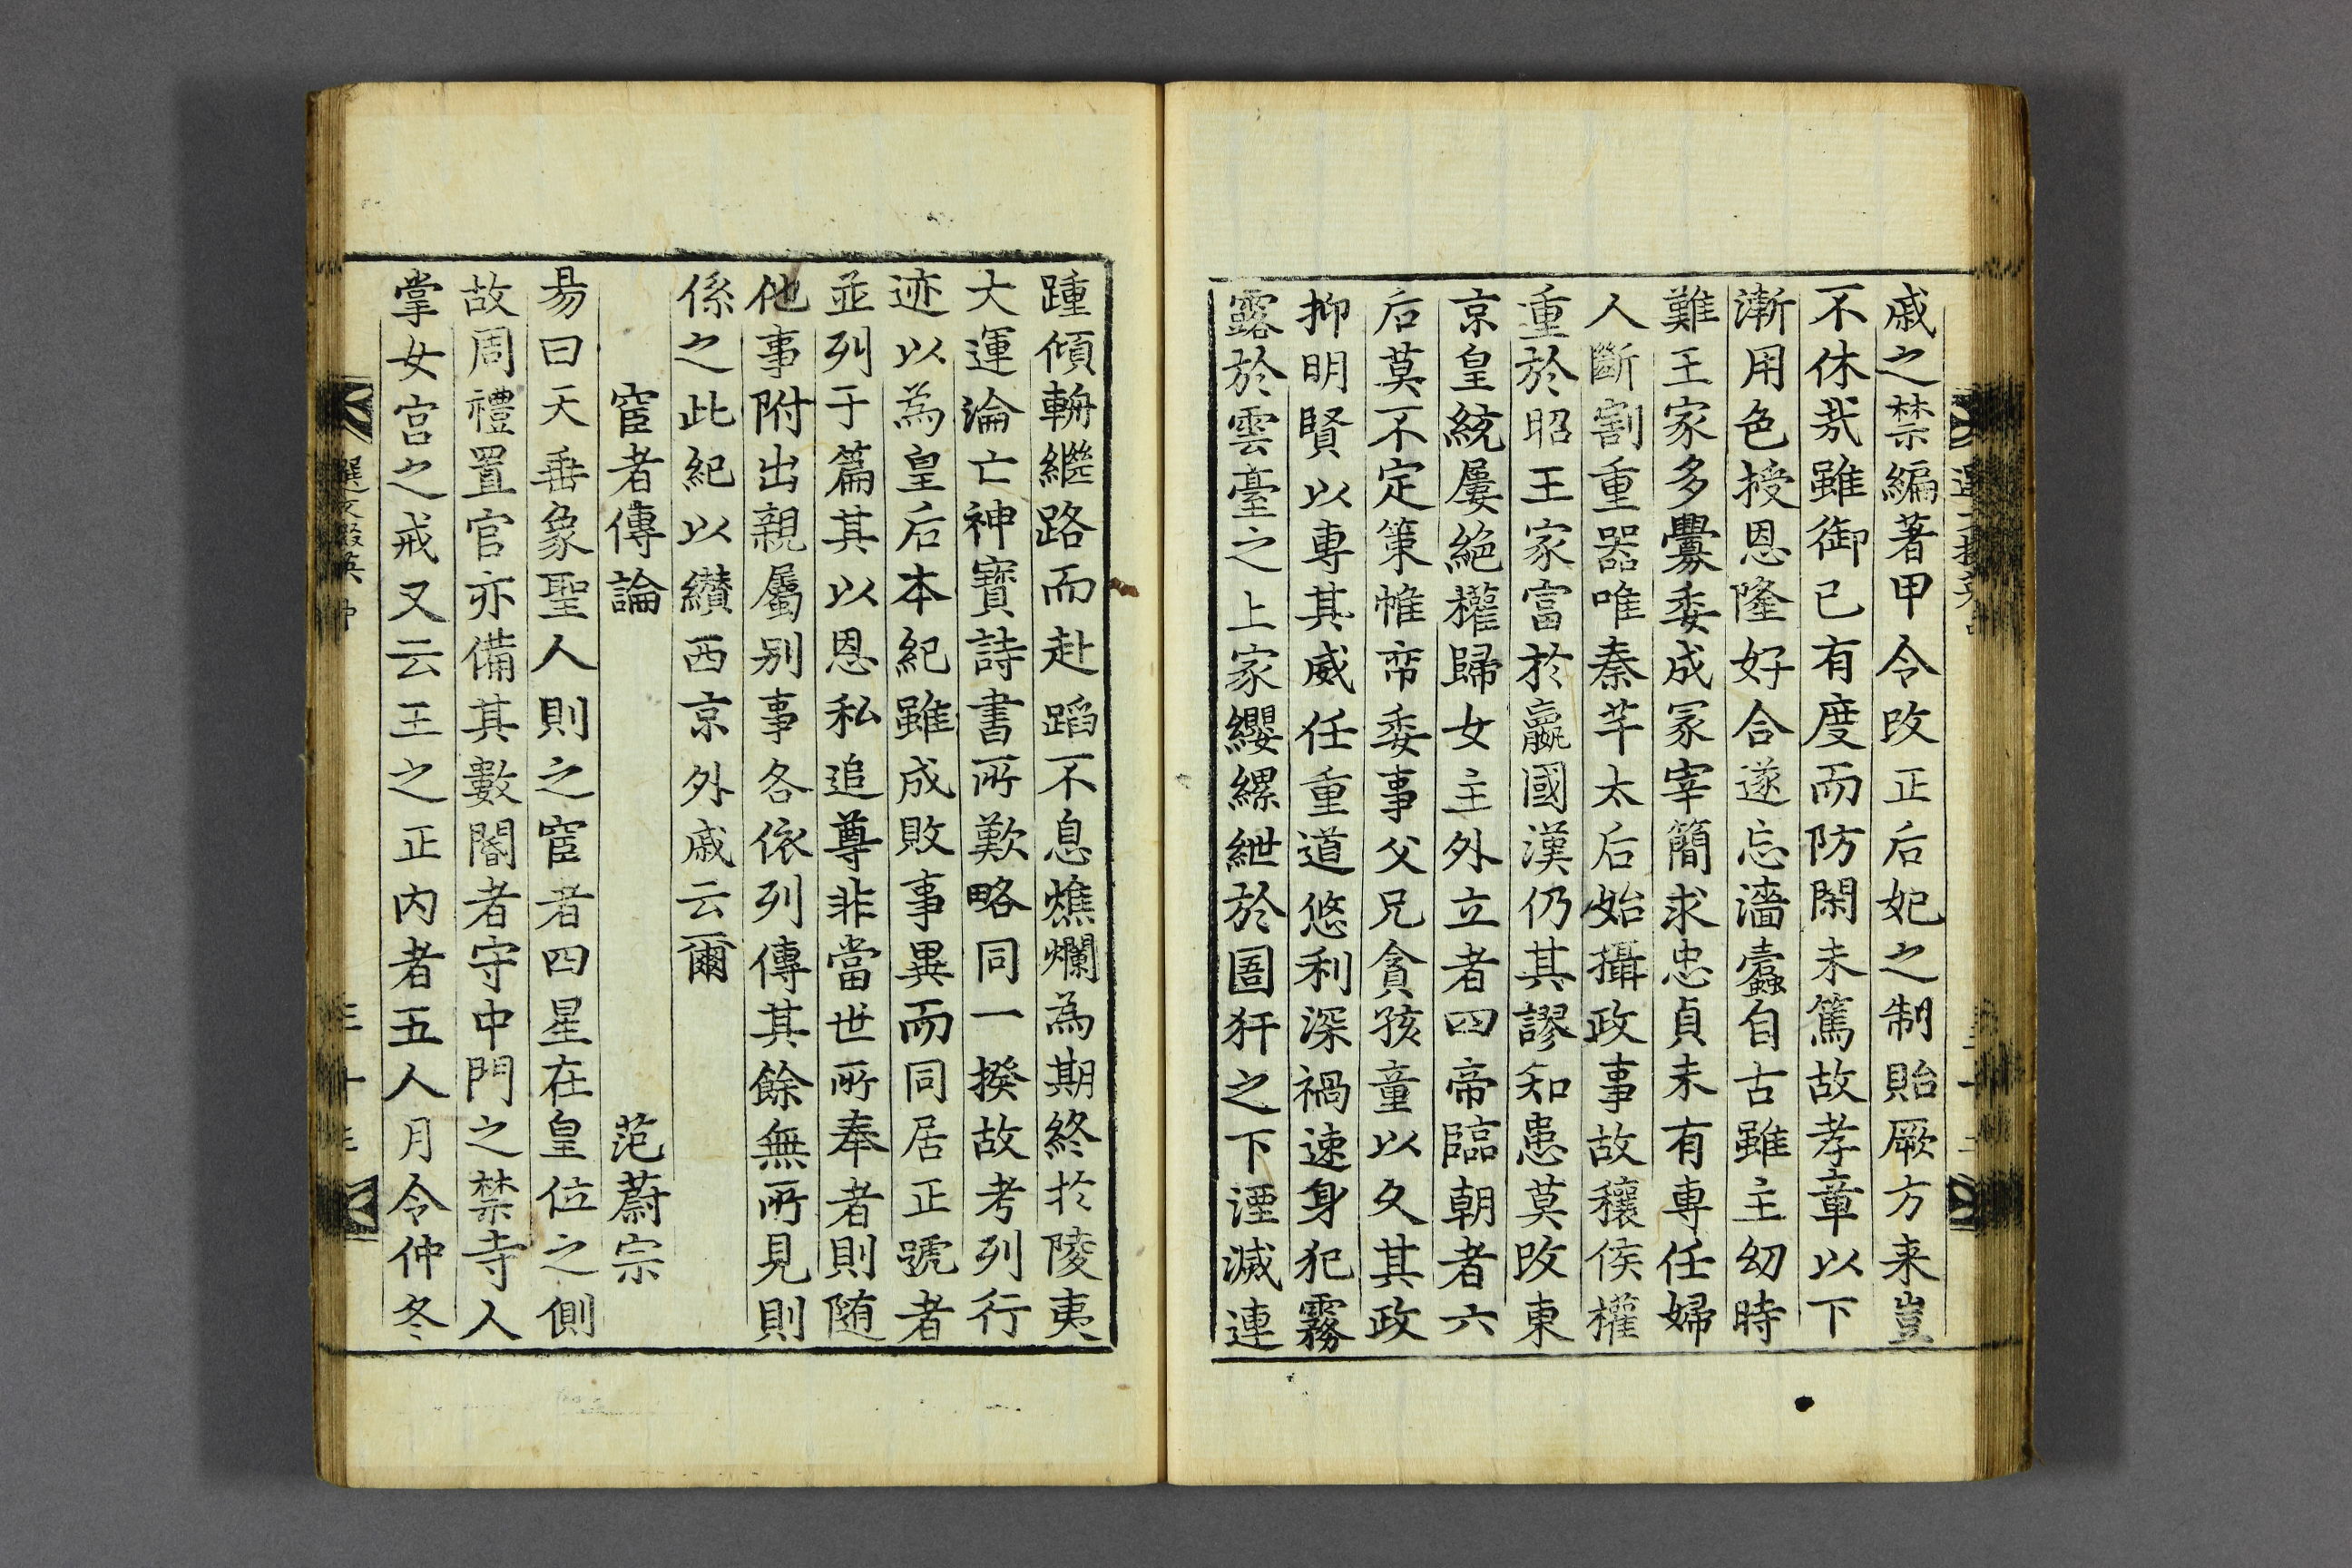 戚之禁編著甲令改正后妃之制貽厥方来豈
不休㦲雖御已有度而防閑未篤故孝章以下
漸用色授恩隆好合遂忘淄蠹自古雖主幼時
難王家多釁委成冢宰簡求忠貞未有專任婦
人斷割重器唯秦芊太后始攝政事故穰侯權
重於昭王家富於嬴國漢仍其謬知患莫改東
京皇統屢絕權歸女主外立者四帝臨朝者六
后莫不定策帷帟委事父兄貪孩童以久其政
抑明賢以專其威任重道悠利深禍速身犯霧
露於雲臺之上家纓縲紲於圄犴之下湮滅連
踵傾輈繼路而赴蹈不息燋爛為期終於陵夷
大運淪亡神寶詩書所歎略同一揆故考列行
迹以為皇后本紀雖成敗事異而同居正號者
並列于篇其以恩私追尊非當世所奉者則随
他事附出親屬别事各依列傳其餘無所見則
係之此紀以纘西京外戚云爾
宦者傳論 范蔚宗
易曰天垂象聖人則之宦者四星在皇位之側
故周禮置官亦備其數閽者守中門之禁寺人
掌女宮之戒又云王之正内者五人月令仲冬